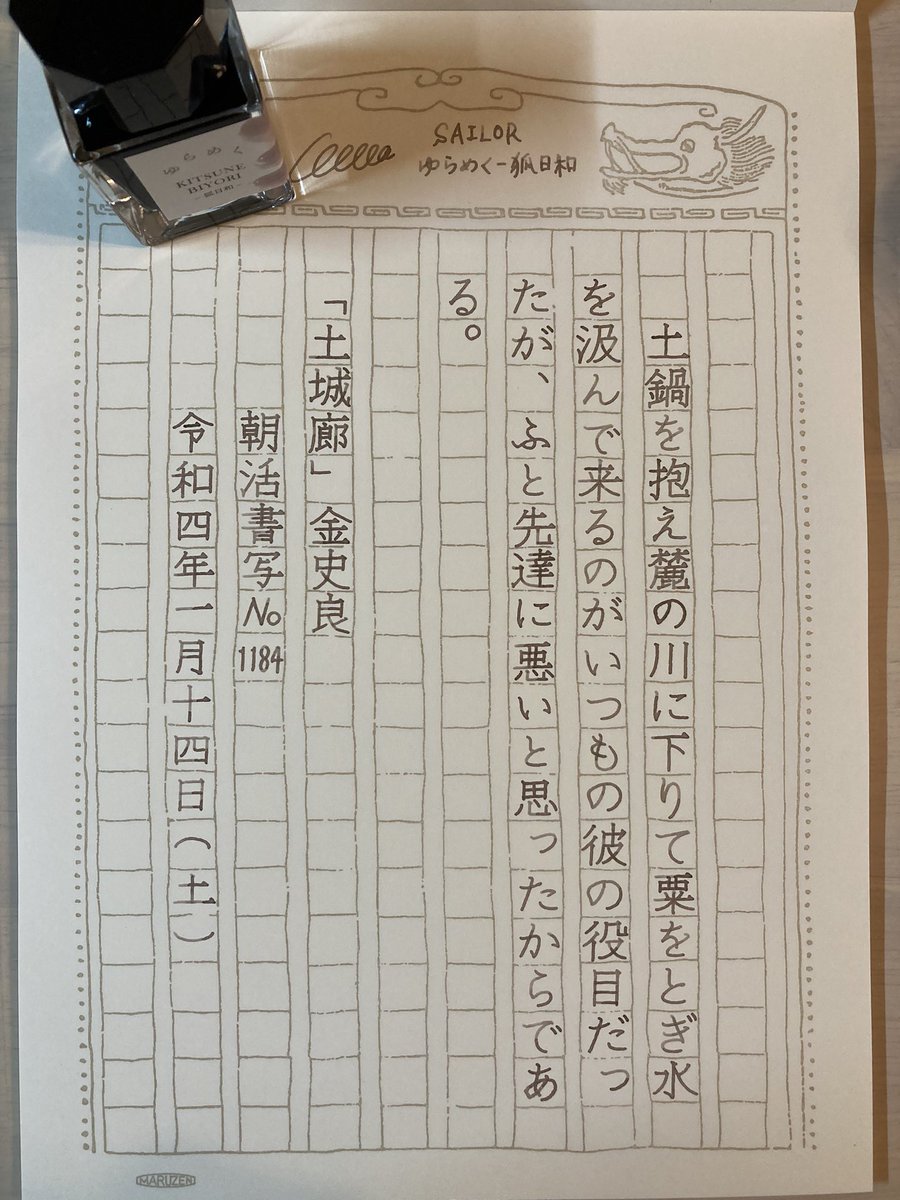 ゆらめく
KITSUNE
BIYORI
SAILOR
ゆらめくー狐日和
土鍋を抱え麓の川に下りて粟をとぎ水
を汲んで来るのがいつもの彼の役目だっ
たが、ふと先達に悪いと思ったからであ
る。
「土城廊」金史良
朝活書写No1184
令和四年一月十四日(土)
MARUZEN